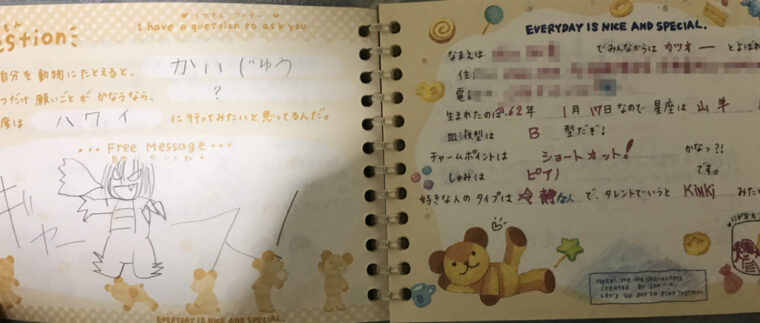 しつもんコーナー
estion
I have a question to ask you.
自分を動物にたとえると、 かいじゅう
つだけ願いごとがかなうなら、 ?
度は ハワイ に行ってみたいと思ってるんだ。
... Free Message ...
ギャー
ス!
EVERYDAY IS NICE AND SPECIAL.
EVERYDAY IS NICE AND SPECIAL.
なまえは でみんなからは カツオー とよばれ
住
電
生まれたのは 62年 1月17日なので 星座は 山羊
血液型は B 型だぞ!
チャームポイントは ショートカット! かなっ?!
しゅみは ピアノ です。
好きな人のタイプは 冷静な人 で、タレントでいうと KinKi みた
Let's go out to play together.